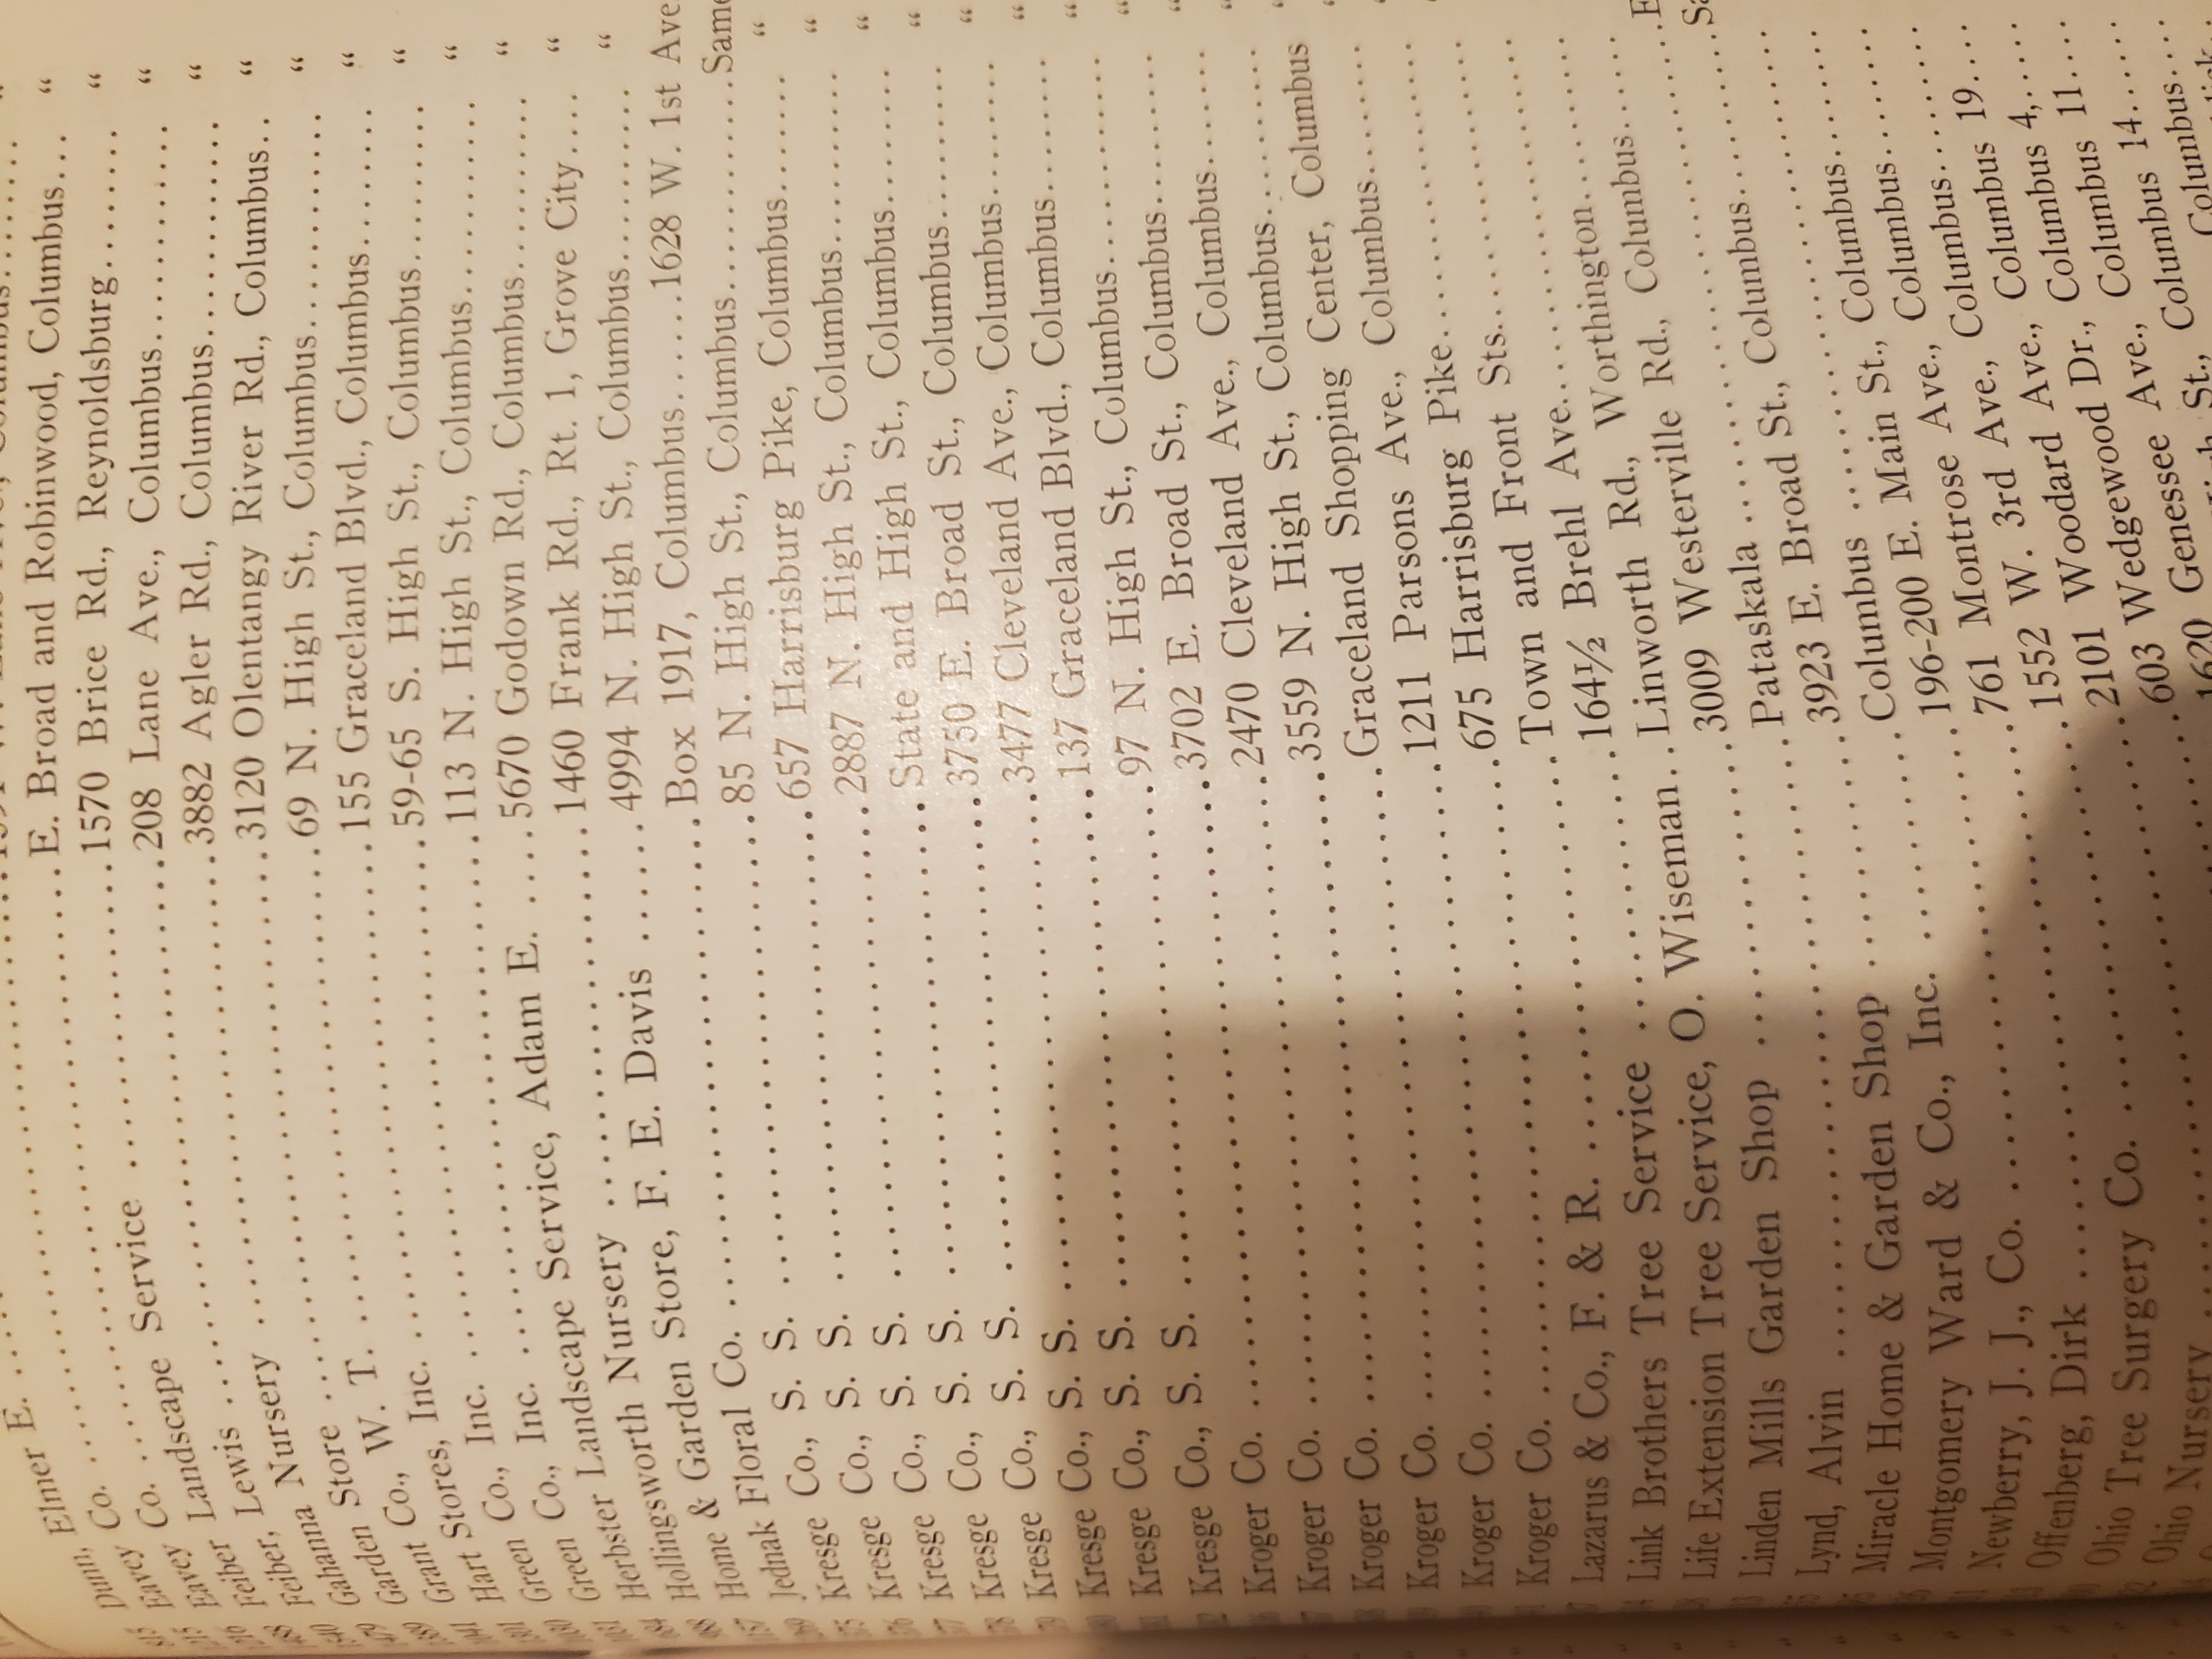 Dunn, Elmer E.
Eavey Co. W. Lane Ave., Columbus
Eavey Co. E. Broad and Robinwood, Columbus... "
Feiber Landscape Service 1570 Brice Rd., Reynoldsburg "
Feiber, Lewis 208 Lane Ave., Columbus "
Gahanna Nursery 3882 Agler Rd., Columbus "
Garden Store 3120 Olentangy River Rd., Columbus.. "
Grant Co., W. T. 69 N. High St., Columbus "
Hart Stores, Inc. 155 Graceland Blvd., Columbus "
Green Co., Inc. 59-65 S. High St., Columbus "
Green Co., Inc. 113 N. High St., Columbus "
Herbster Landscape Service, Adam E. 5670 Godown Rd., Columbus "
Hollingsworth Nursery 1460 Frank Rd., Rt. 1, Grove City.... "
Home & Garden Store, F. E. Davis 4994 N. High St., Columbus "
Jednak Floral Co. Box 1917, Columbus.....1628 W. 1st Ave
Kresge Co., S. S. 85 N. High St., Columbus Same
Kresge Co., S. S. 657 Harrisburg Pike, Columbus "
Kresge Co., S. S. 2887 N. High St., Columbus "
Kresge Co., S. S. State and High St., Columbus "
Kresge Co., S. S. 3750 E. Broad St., Columbus "
Kresge Co., S. S. 3477 Cleveland Ave., Columbus "
Kresge Co., S. S. 137 Graceland Blvd., Columbus "
Kresge Co., S. S. 97 N. High St., Columbus "
Kroger Co. 3702 E. Broad St., Columbus "
Kroger Co. 2470 Cleveland Ave., Columbus "
Kroger Co. 3559 N. High St., Columbus "
Kroger Co. Graceland Shopping Center, Columbus "
Kroger Co. 1211 Parsons Ave., Columbus
Kroger Co. 675 Harrisburg Pike
Lazarus & Co., F. & R. Town and Front Sts.
Link Brothers Tree Service 164½ Brehl Ave.
Life Extension Tree Service, O. Wiseman Linworth Rd., Worthington
Linden Mills Garden Shop 3009 Westerville Rd., Columbus
Lynd, Alvin Pataskala
Miracle Home & Garden Shop 3923 E. Broad St., Columbus
Montgomery Ward & Co., Inc. Columbus
Newberry, J. J., Co. 196-200 E. Main St., Columbus
Offenberg, Dirk 761 Montrose Ave., Columbus
Ohio Tree Surgery Co. 1552 W. 3rd Ave., Columbus 19
Ohio Nursery 2101 Woodard Ave., Columbus 4,
603 Wedgewood Dr., Columbus 11
1620 Genessee Ave., Columbus 14
St., Columbus